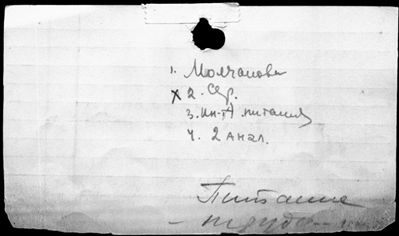 1. Молчанова
х 2. Сер.
3. Ин-т питания
4. 2 анал.
Питание